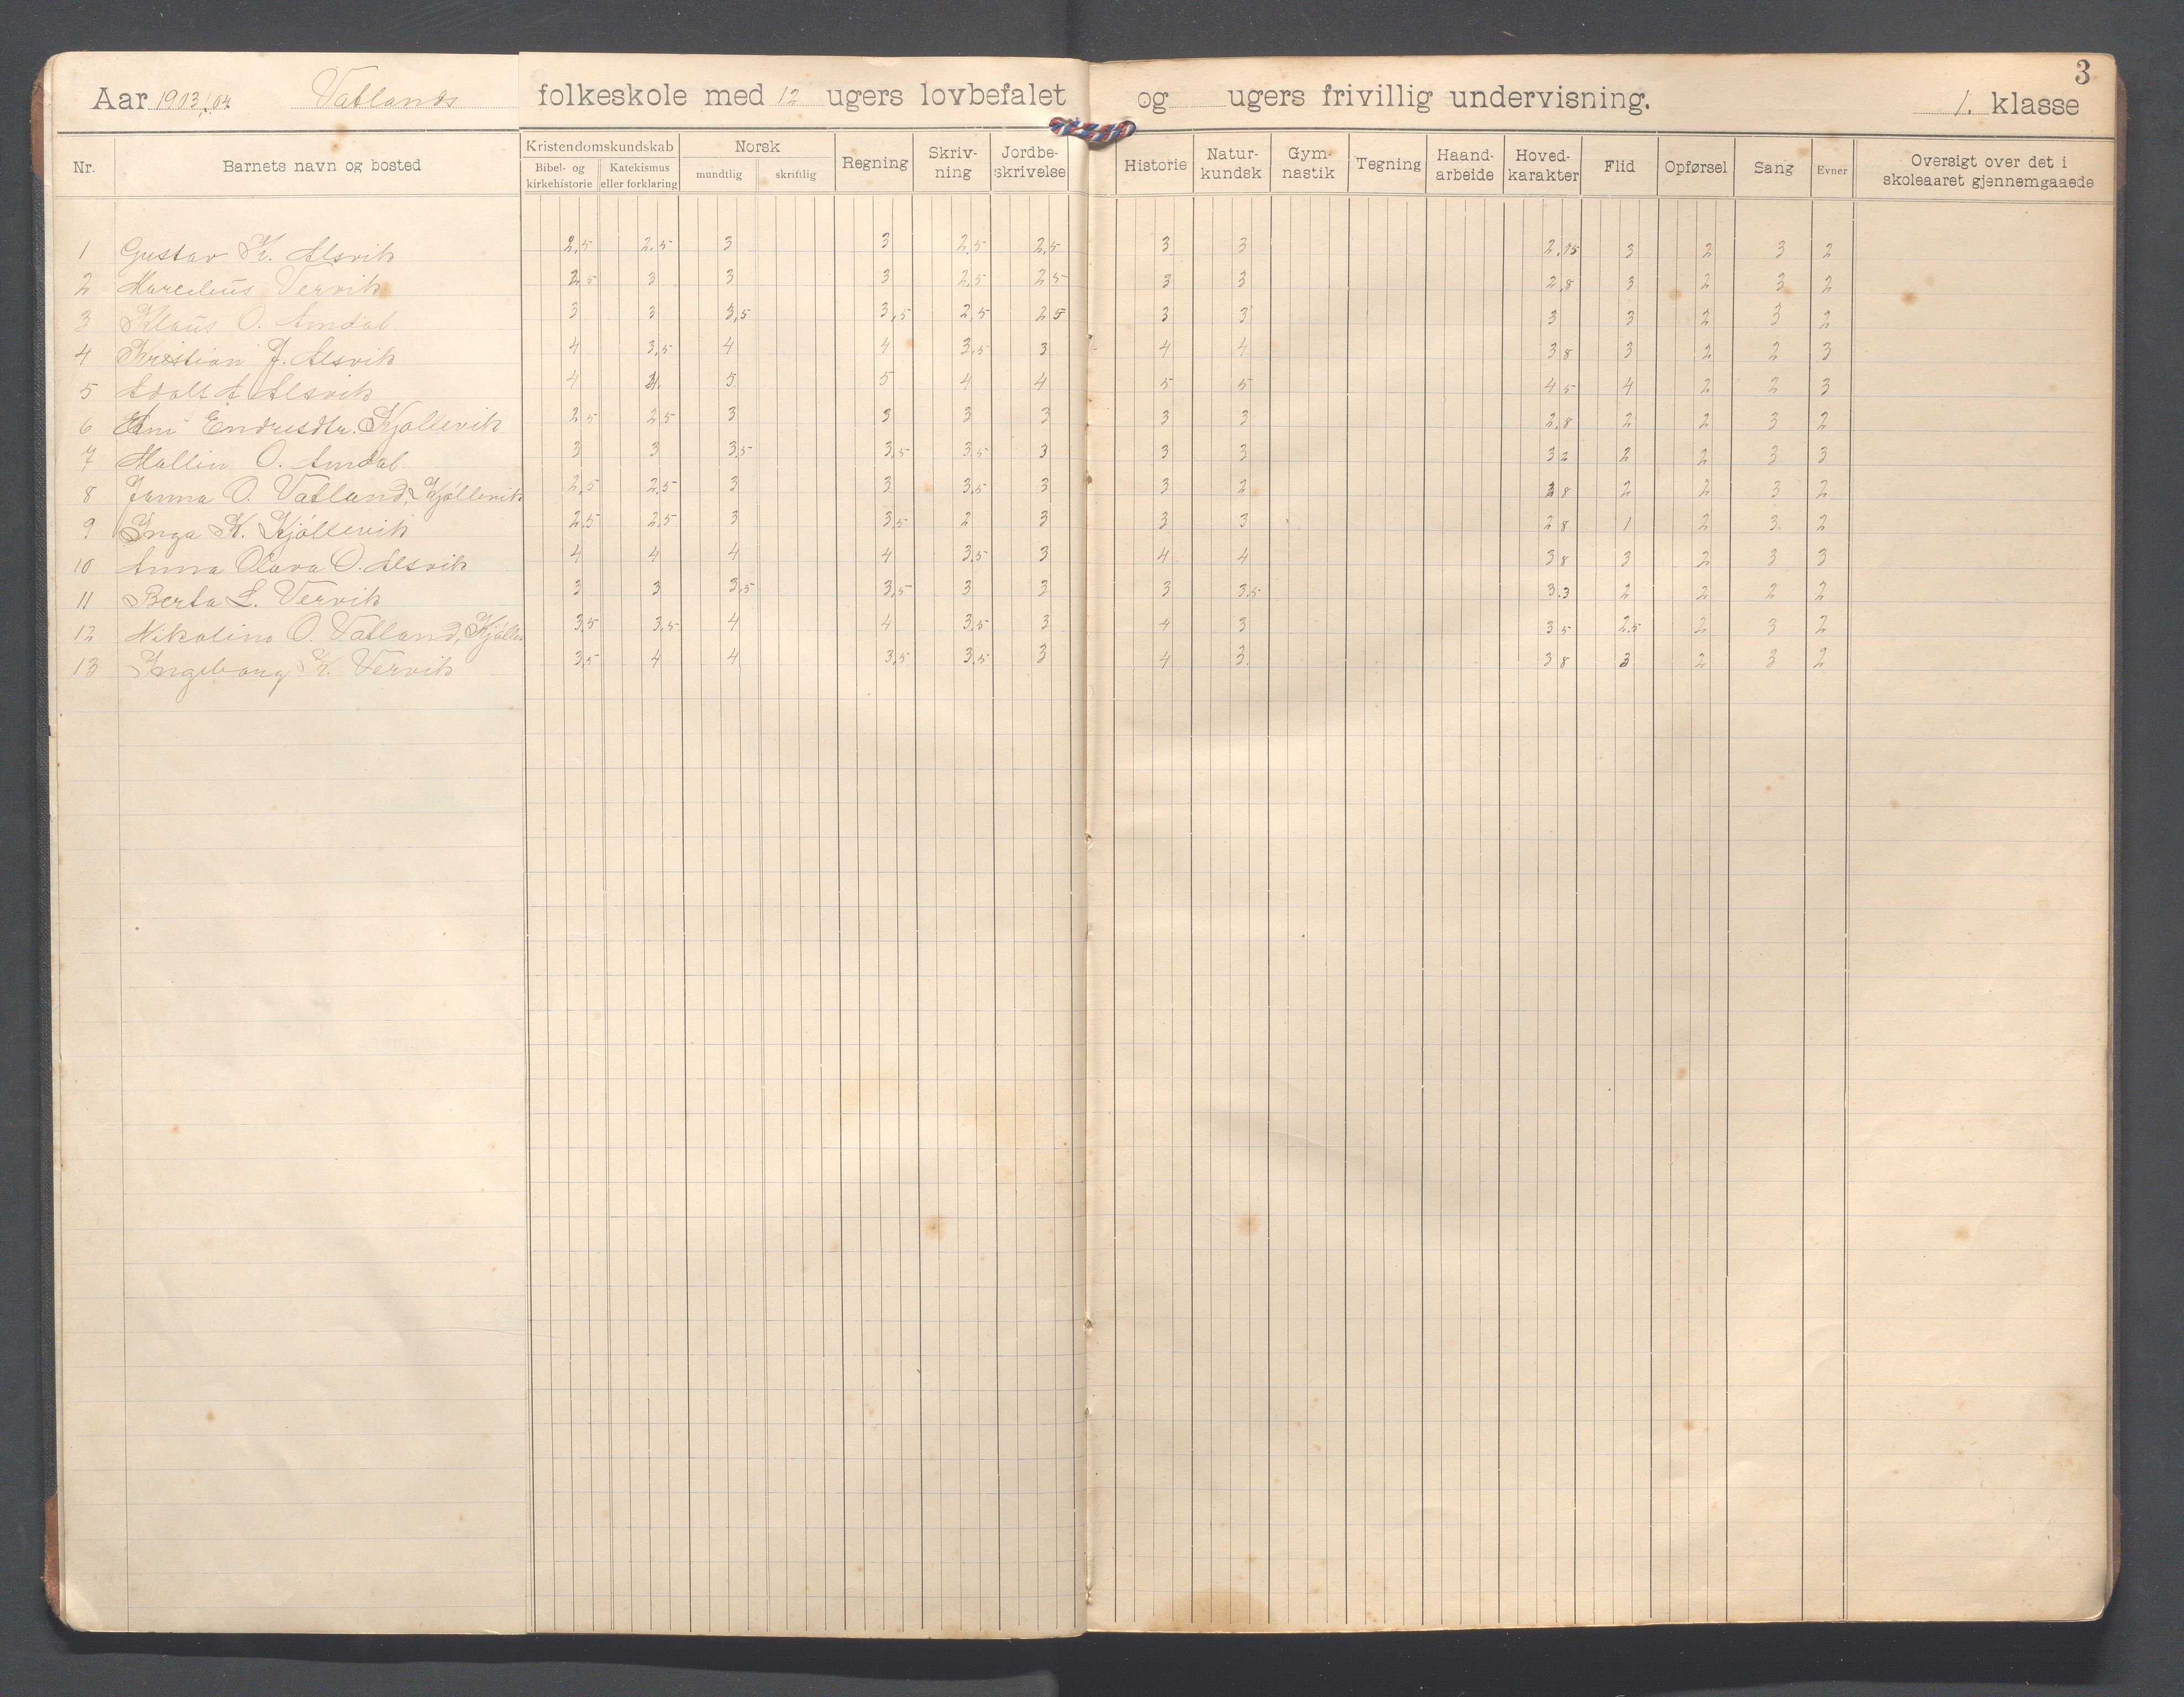 3
Aar 1903/04 Vatlands folkeskole med 12 ugers lovbefalet og ugers frivillig undervisning. 1. klasse
Nr. Barnets navn og bosted Kristendomskundskab Bibel- og kirkehistorie Katekismus eller forklaring Norsk mundtlig skriftlig Regning Skriv-ning Jordbe-skrivelse Historie Natur-kundsk Gym-nastik Tegning Haand-arbeide Hoved-karakter Flid Opførsel Sang Evner Oversigt over det i skoleaaret gjennemgaaede
1 Gustav K. Alsvik 2,5 2,5 3 3 2,5 2,5 3 3 2,75 3 2 3 2
2 Marselius Vervik 2 5 3 3 3 2,5 2 5 3 3 2,8 3 2 3 2
3 Klaus O. Amdal. 3 3 3,5 3,5 2,5 2 5 3 3 3 3 2 3 2
4 Kristian J. Alsvik 4 3,5 4 4 3,5 3 4 4 3 8 3 2 2 3
5 Adolf A Alsvik 4 4 5 5 4 4 5 5 4 5 4 2 2 3
6 Endresdtr. Kjøllevik 2 5 2 5 3 3 3 3 3 3 2,8 2 2 3 2
7 Mallin O. Amdal 3 3 3,5 3,5 3,5 3 3 3 3 2 2 2 3 3
8 Janna O. Vatland, Kjøllevik 2,5 2,5 3 3 3,5 3 3 2 2 8 2 2 3 2
9 Inga K. Kjøllevik 2,5 2,5 3 3,5 2 3 3 3 2 8 1 2 3 2
10 Anna Olava O. Alsvik 4 4 4 4 3,5 3 4 4 3 8 3 2 3 3
11 Berta L. Vervik 3 3 3,5 3,5 3 3 3 3,5 3.3 2 2 2 2
12 Nikoline O. Vatland, Kjølle 3,5 3,5 4 4 3,5 3 4 3 3 5 2,5 2 3 2
13 Ingeborg K. Vervik 3,5 4 4 3,5 3,5 3 4 3 3 8 3 2 3 2